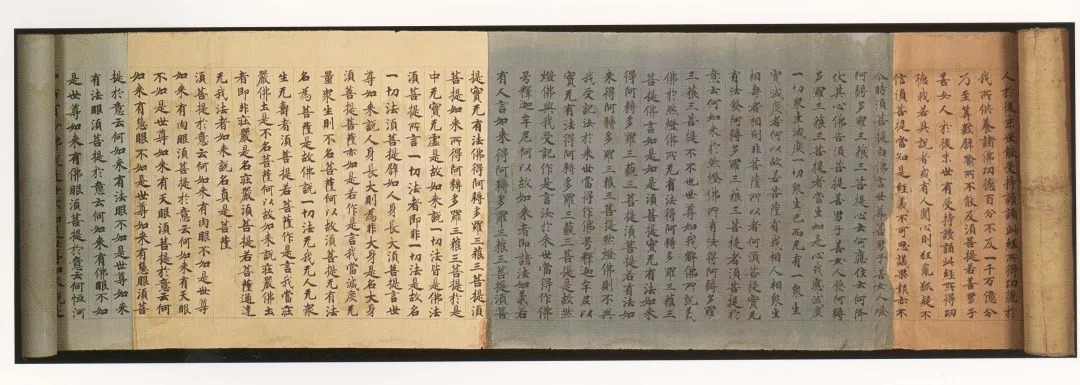 人於後末世能受持讀誦此經所得功德於
我所供養諸佛功德百分不及一千万億分
乃至筭數譬喻所不能及須菩提若善男子
善女人於後末世有受持讀誦此經所得功
德我若具說者或有人聞心則狂亂狐疑不
信須菩提當知是經義不可思議果報亦不
尒時須菩提白佛言世尊善男子善女人發
阿耨多羅三藐三菩提心云何應住云何降
伏其心佛告須菩提善男子善女人發阿耨
多羅三藐三菩提者當生如是心我應滅度
一切衆生滅度一切衆生已而无有一衆生
實滅度者何以故若菩薩有我相人相衆生
相壽者相則非菩薩所以者何須菩提實无
有法發阿耨多羅三藐三菩提者須菩提於
意云何如來於然燈佛所有法得阿耨多羅
三藐三菩提不不也世尊如我解佛所說義
佛於然燈佛所无有法得阿耨多羅三藐三
菩提佛言如是如是須菩提實无有法如來
得阿耨多羅三藐三菩提須菩提若有法如
來得阿耨多羅三藐三菩提然燈佛則不與
我受記汝於來世當得作佛号釋迦牟尼以
實无有法得阿耨多羅三藐三菩提是故然
燈佛與我受記作是言汝於來世當得作佛
号釋迦牟尼何以故如來者即諸法如義若
有人言如來得阿耨多羅三藐三菩提須菩
提實无有法佛得阿耨多羅三藐三菩提須
菩提如來所得阿耨多羅三藐三菩提於是
中无實无虛是故如來說一切法皆是佛法
須菩提所言一切法者即非一切法是故名
一切法須菩提譬如人身長大須菩提言世
尊如來說人身長大則為非大身是名大身
須菩提菩薩亦如是若作是言我當滅度无
量衆生則不名菩薩何以故須菩提无有法
名為菩薩是故佛說一切法无我无人无衆
生无壽者須菩提若菩薩作是言我當莊
嚴佛土是不名菩薩何以故如來說莊嚴佛土
者即非莊嚴是名莊嚴須菩提若菩薩通達
无我法者如來說名真是菩薩
須菩提於意云何如來有肉眼不如是世尊
如來有肉眼須菩提於意云何如來有天眼
不如是世尊如來有天眼須菩提於意云何
如來有慧眼不如是世尊如來有慧眼須菩
提於意云何如來有法眼不如是世尊如來
有法眼須菩提於意云何如來有佛眼不如
是世尊如來有佛眼須菩提於意云何恒河